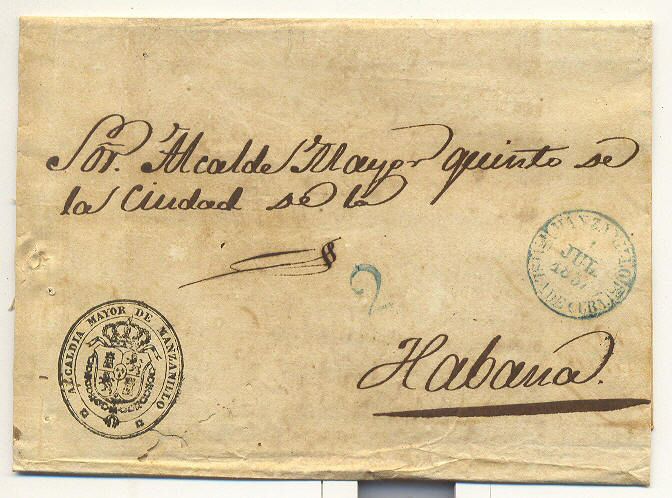 Sor. Alcalde Mayor quinto de
la Ciudad de la
2
MANZANILLO
JUL.
DE CUBA
ALCALDIA MAYOR DE MANZANILLO
Habana.